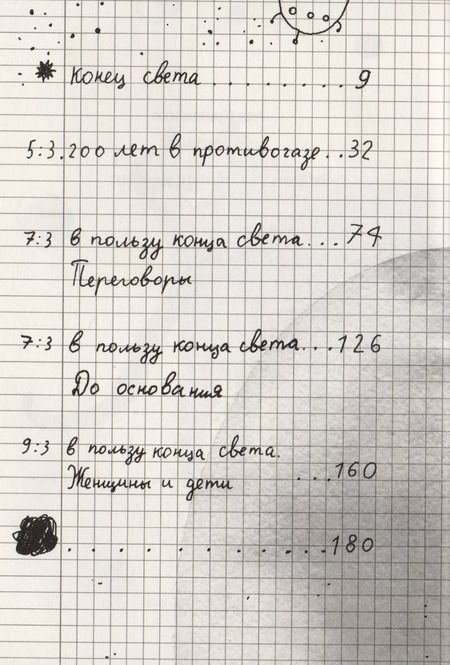 Конец света ......... 9
5:3. 200 лет в противогазе .. 32
7:3 в пользу конца света ... 74
Переговоры
7:3 в пользу конца света ... 126
До основания
9:3 в пользу конца света.
Женщины и дети ... 160
. . . . . . . . . . 180